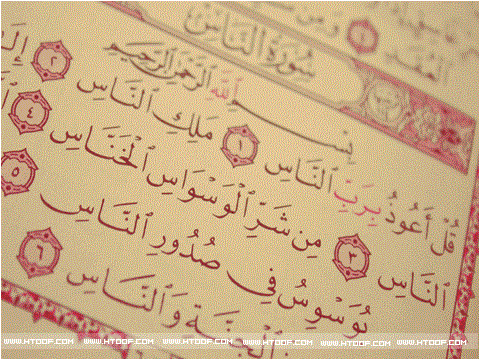 ٱلْعُقَدِ وَمِن
سُورَةُ النَّاسِ
بِسْمِ ٱللَّهِ ٱلرَّحْمَٰنِ ٱلرَّحِيمِ
قُلْ أَعُوذُ بِرَبِّ ٱلنَّاسِ ١ مَلِكِ ٱلنَّاسِ ٢
ٱلنَّاسِ ٣ مِن شَرِّ ٱلْوَسْوَاسِ ٱلْخَنَّاسِ ٤
يُوَسْوِسُ فِى صُدُورِ ٱلنَّاسِ ٥
ٱلْجِنَّةِ وَٱلنَّاسِ ٦
WWW.HTOOF.COM WWW.HTOOF.COM WWW.HTOOF.COM WWW.HTOOF.COM WWW.HTOOF.COM WWW.HTOOF.COM